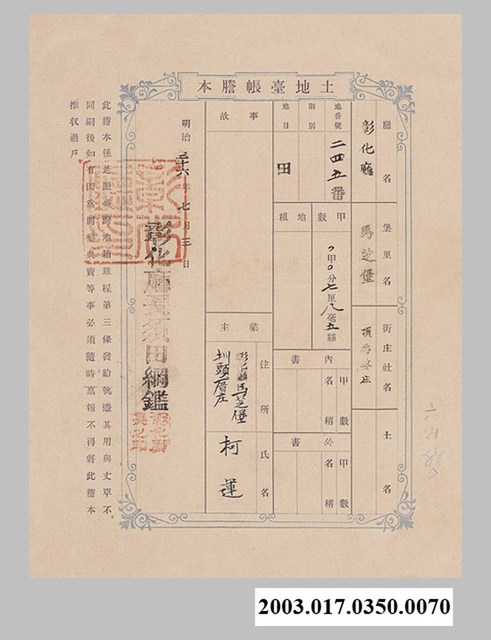 土地臺帳謄本
廳名
彰化廳
堡里名
馬芝堡
街庄社名
頂番婆庄
土名
地番號
二四五番
則別
地目
田
甲數
地租
〇甲〇分七厘八毫五絲
內書
甲數
名稱
外書
甲數
名稱
事故
業主
住所
彰化廳馬芝堡
圳頭厝庄
氏名
柯蓮
明治三十六年七月三日
彰化廳長須田綱鑑
此謄本係是
第三條發給號憑其用與丈單不
同嗣後如有
典賣等事必須隨時稟報不得將此謄本
推收過戶
2003.017.0350.0070